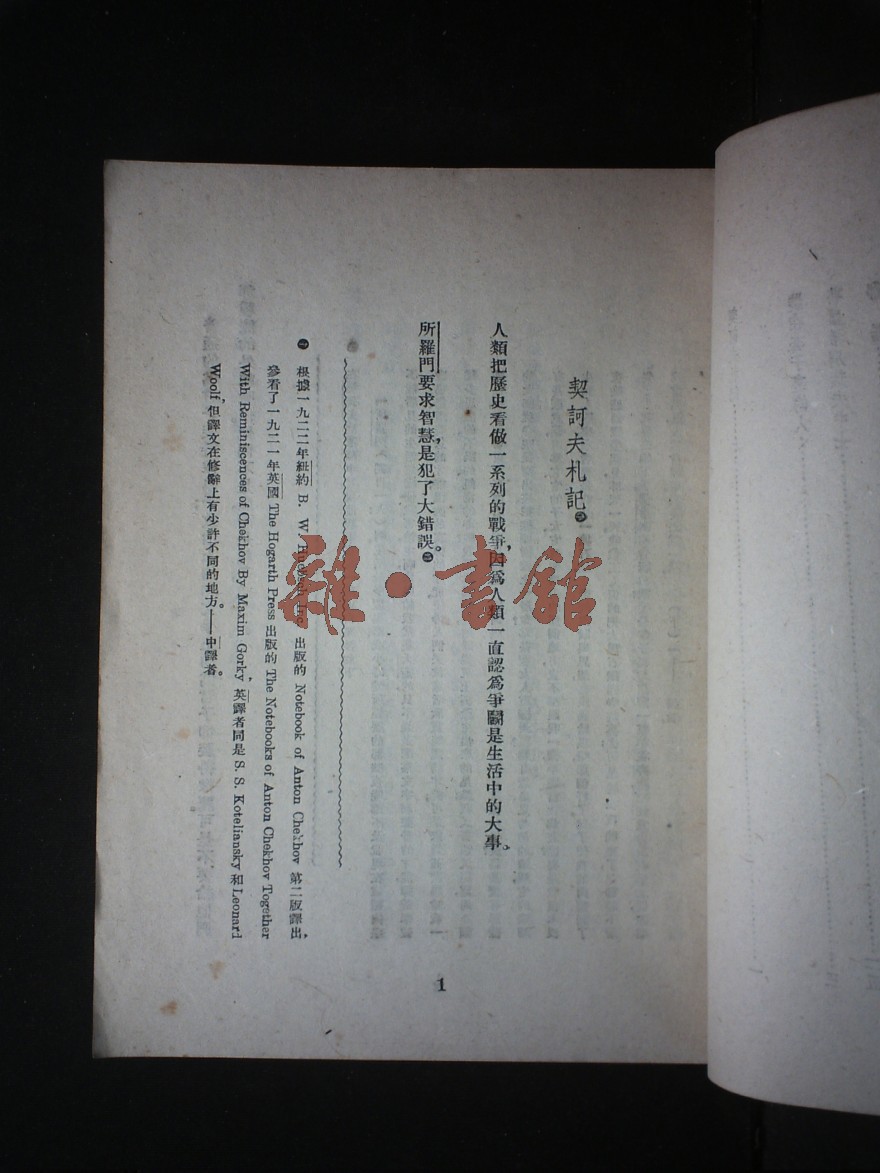 契訶夫札記㊀
人類把歷史看做一系列的戰爭，因爲人類一直認爲爭鬭是生活中的大事。
所羅門要求智慧，是犯了大錯誤。㊁
㊀ 根據一九二二年紐約 B. W. Inc. 出版的 Notebook of Anton Chekhov 第二版譯出，
參看了一九二一年英國 The Hogarth Press 出版的 The Notebooks of Anton Chekhov Together
With Reminiscences of Chekhov By Maxim Gorky，英譯者同是 S. S. Koteliansky 和 Leonard
Woolf，但譯文在修辭上有少許不同的地方。——中譯者。
1
雜·書館